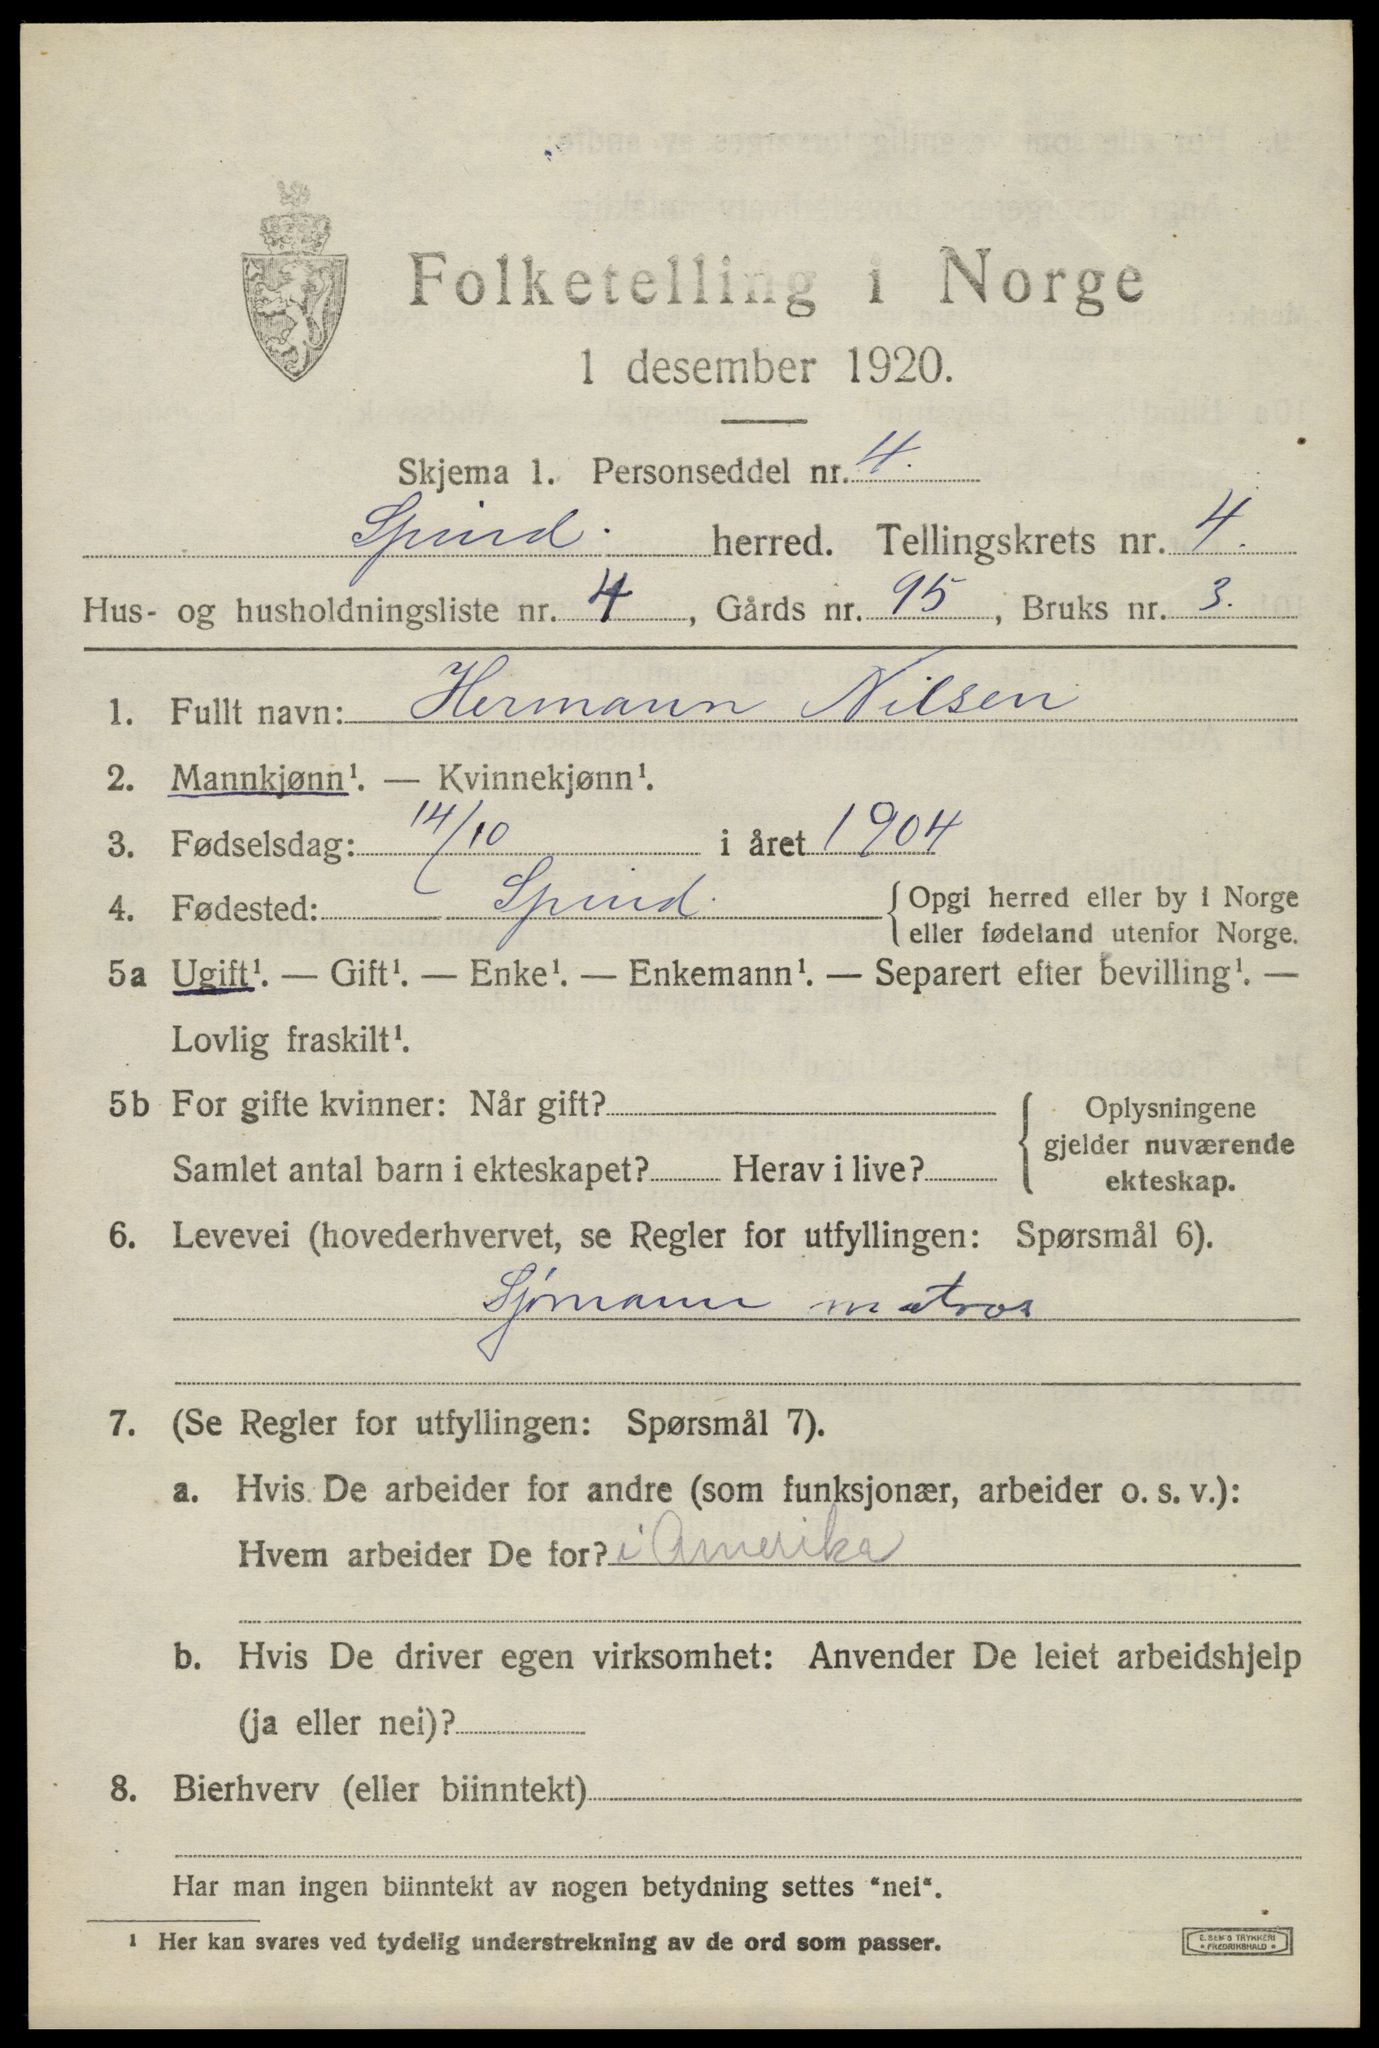 Folketelling i Norge
1 desember 1920.
Skjema 1. Personseddel nr. 4.
Spind. herred. Tellingskrets nr. 4.
Hus- og husholdningsliste nr. 4, Gårds nr. 95, Bruks nr. 3.
1. Fullt navn: Hermann Nilsen
2. Mannkjønn¹. — Kvinnekjønn¹.
3. Fødselsdag: 14/10 i året 1904
4. Fødested: Spind. { Opgi herred eller by i Norge
eller fødeland utenfor Norge.
5a Ugift¹. — Gift¹. — Enke¹. — Enkemann¹. — Separert efter bevilling¹. —
Lovlig fraskilt¹.
5b For gifte kvinner: Når gift? { Oplysningene
gjelder nuværende
Samlet antal barn i ekteskapet? Herav i live? ekteskap.
6. Levevei (hovederhvervet, se Regler for utfyllingen: Spørsmål 6).
Sjømann matros
7. (Se Regler for utfyllingen: Spørsmål 7).
a. Hvis De arbeider for andre (som funksjonær, arbeider o. s. v.):
Hvem arbeider De for? i Amerika
b. Hvis De driver egen virksomhet: Anvender De leiet arbeidshjelp
(ja eller nei)?
8. Bierhverv (eller biinntekt)
Har man ingen biinntekt av nogen betydning settes “nei“.
¹ Her kan svares ved tydelig understrekning av de ord som passer.
E. SEM'S TRYKKERI
* FREDRIKSHALD *